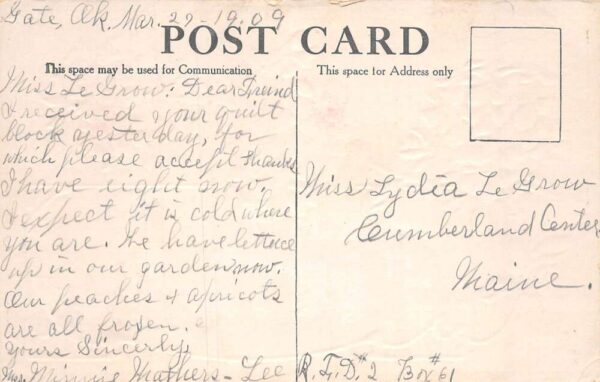 Gate, Ok. Mar. 27-1909
POST CARD
This space may be used for Communication
This space for Address only
Miss Le Grow: Dear Freind
I received your quilt
block yesterday, for
which please accept thanks
I have eight now.
I expect it is cold where
you are. We have lettuce
up in our garden now.
Our peaches & apricots
are all frozen.
Yours Sincerly,
Mrs. Minnie Mathers-Lee
Miss Lydia Le Grow
Cumberland Center
Maine.
R.F.D.#2 Box#61